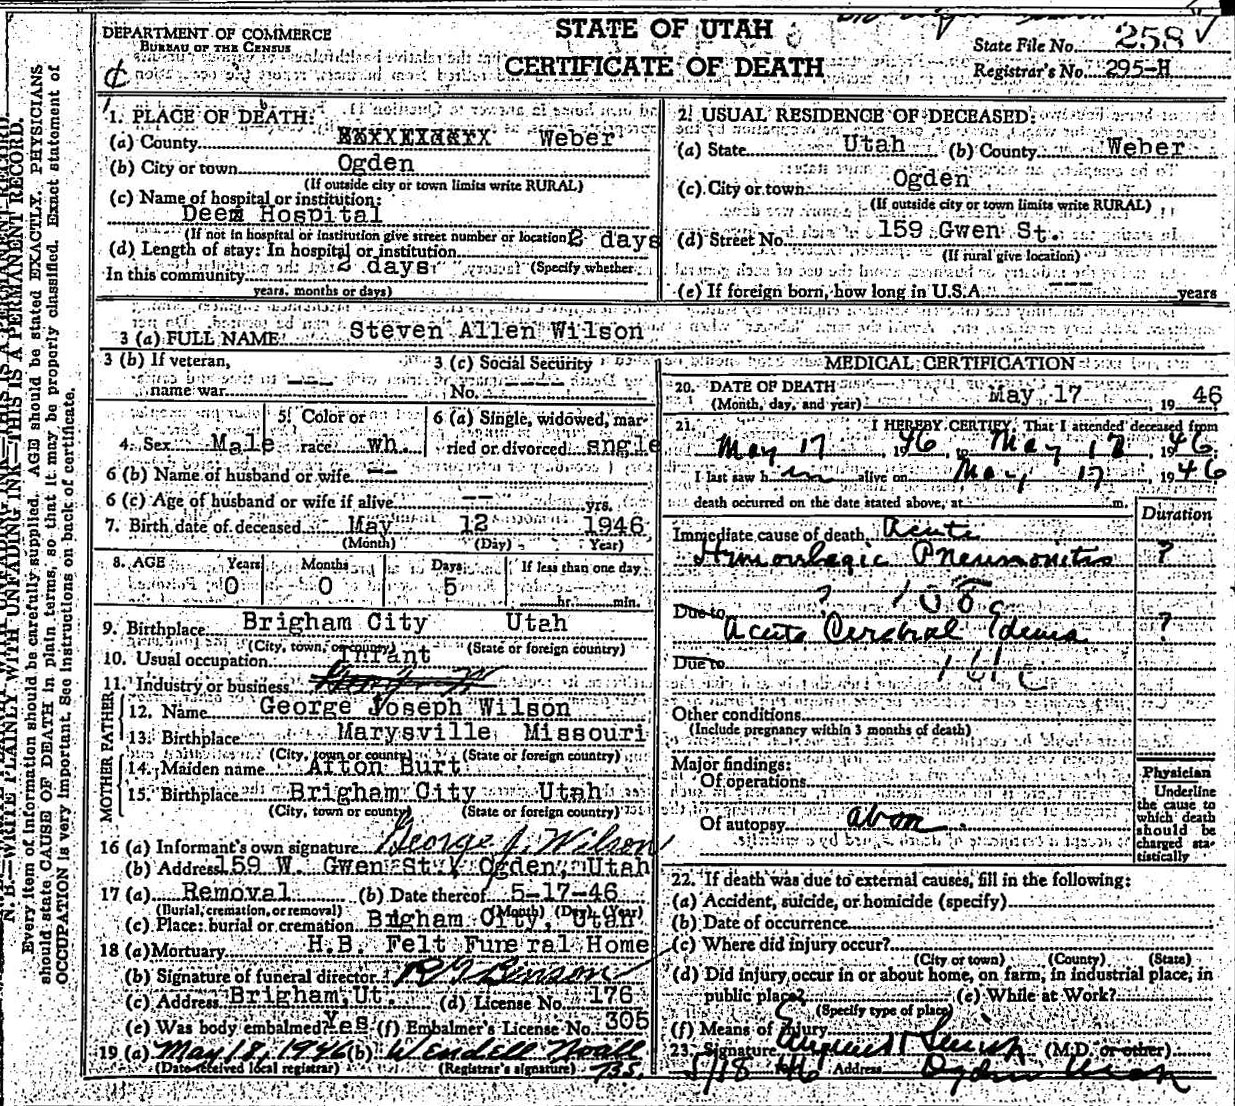 DEPARTMENT OF COMMERCE
BUREAU OF THE CENSUS
STATE OF UTAH
CERTIFICATE OF DEATH
State File No. 258
Registrar's No. 295-H
N. B.—WRITE PLAINLY WITH UNFADING INK—THIS IS A PERMANENT RECORD.
Every item of information should be carefully supplied. AGE should be stated EXACTLY. PHYSICIANS
should state CAUSE OF DEATH in plain terms, so that it may be properly classified. Exact statement of
OCCUPATION is very important. See instructions on back of certificate.
1. PLACE OF DEATH:
(a) County Weber
(b) City or town Ogden
(If outside city or town limits write RURAL)
(c) Name of hospital or institution:
Dee Hospital
(If not in hospital or institution give street number or location)
(d) Length of stay: In hospital or institution 2 days
In this community 2 days (Specify whether
years, months or days)
2. USUAL RESIDENCE OF DECEASED:
(a) State Utah (b) County Weber
(c) City or town Ogden
(If outside city or town limits write RURAL)
(d) Street No. 159 Gwen St.
(If rural give location)
(e) If foreign born, how long in U.S.A. --- years
3 (a) FULL NAME Steven Allen Wilson
3 (b) If veteran, name war ---
3 (c) Social Security No. ----
4. Sex Male 5. Color or race wh. 6 (a) Single, widowed, married or divorced sngle
6 (b) Name of husband or wife --
6 (c) Age of husband or wife if alive -- yrs.
7. Birth date of deceased May 12 1946
(Month) (Day) Year)
8. AGE Years Months Days If less than one day
0 0 5 hr. min.
9. Birthplace Brigham City Utah
(City, town, or county) (State or foreign country)
10. Usual occupation Infant
11. Industry or business
FATHER
12. Name George Joseph Wilson
13. Birthplace Marysville Missouri
(City, town or county) (State or foreign country)
MOTHER
14. Maiden name Afton Burt
15. Birthplace Brigham City Utah
(City, town or county) (State or foreign country)
16 (a) Informant's own signature George J. Wilson
(b) Address 159 W. Gwen St., Ogden, Utah
17 (a) Removal (b) Date thereof 5-17-46
(Burial, cremation, or removal) (Month) (Day) (Year)
(c) Place: burial or cremation Brigham City, Utah
18 (a) Mortuary H.B. Felt Funeral Home
(b) Signature of funeral director
(c) Address Brigham, Ut. (d) License No. 176
(e) Was body embalmed? Yes (f) Embalmer's License No. 305
19 (a) May 18, 1946 (b) Wendell Noall
(Date received local registrar) (Registrar's signature) B.S.
MEDICAL CERTIFICATION
20. DATE OF DEATH
(Month, day, and year) May 17, 19 46
21. I HEREBY CERTIFY, That I attended deceased from
May 17, 1946, to May 17, 1946;
I last saw h im alive on May 17, 1946
death occurred on the date stated above, at m.
Duration
Immediate cause of death Acute
Hemorrhagic Pneumonitis ?
Due to
Acute Cerebral Edema ?
Due to
Other conditions
(Include pregnancy within 3 months of death)
Major findings:
Of operations
Of autopsy above.
Physician
Underline
the cause to
which death
should be
charged sta-
tistically
22. If death was due to external causes, fill in the following:
(a) Accident, suicide, or homicide (specify)
(b) Date of occurrence
(c) Where did injury occur?
(City or town) (County) (State)
(d) Did injury occur in or about home, on farm, in industrial place, in
public place? (e) While at Work?
(Specify type of place)
(f) Means of Injury
23. Signature (M.D. or other)
5/18 46 Address Ogden Utah